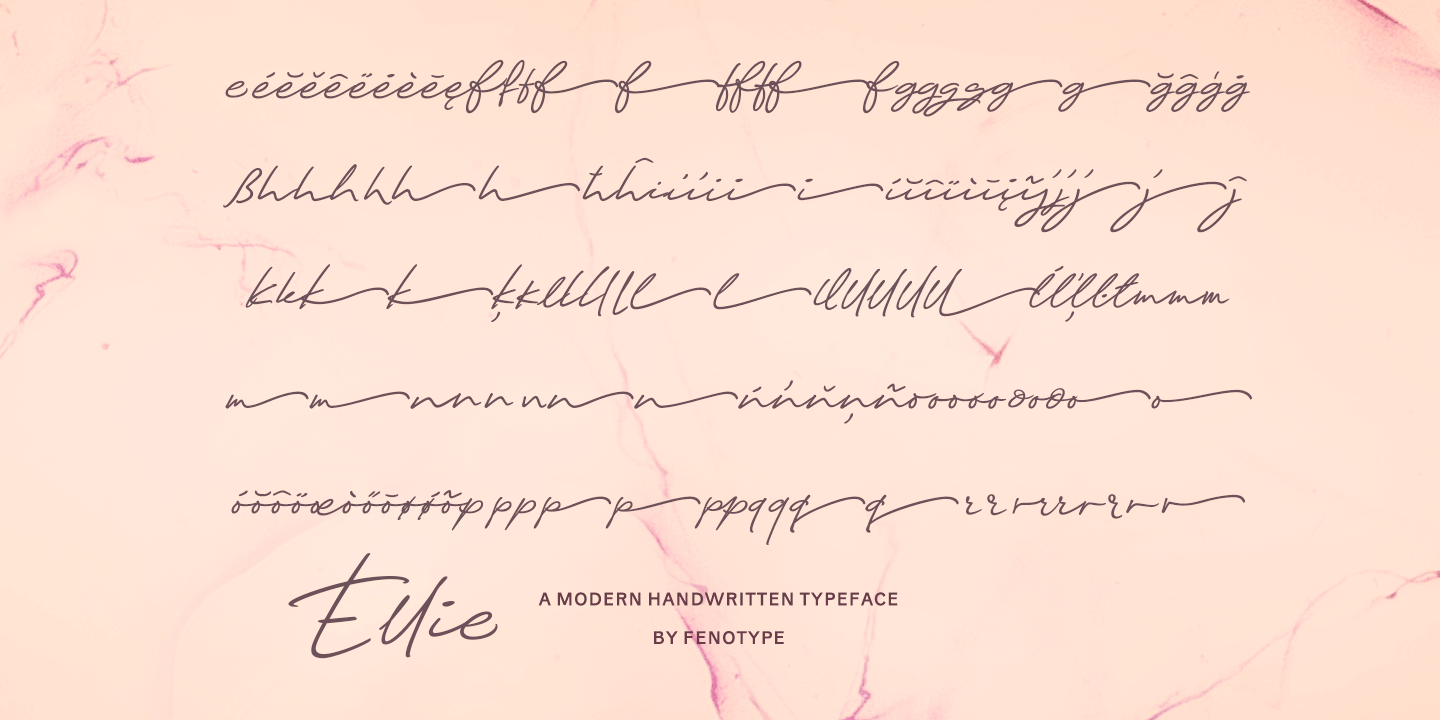 eéĕěêëėèēęffff f ffff fggggg g ğĝģġ
ßhhhhh h ħĥiiiii i íĭîïìīįĩjjjj j ĵ
kkk k ķĸlllllll l llllllll ĺľļŀłmmm
m m nnnnn n ńŉňņñoooooooo o
óŏôöœòőōøǿõpppp p ppqqq q rrrrrrrrr
Ellie
A MODERN HANDWRITTEN TYPEFACE
BY FENOTYPE